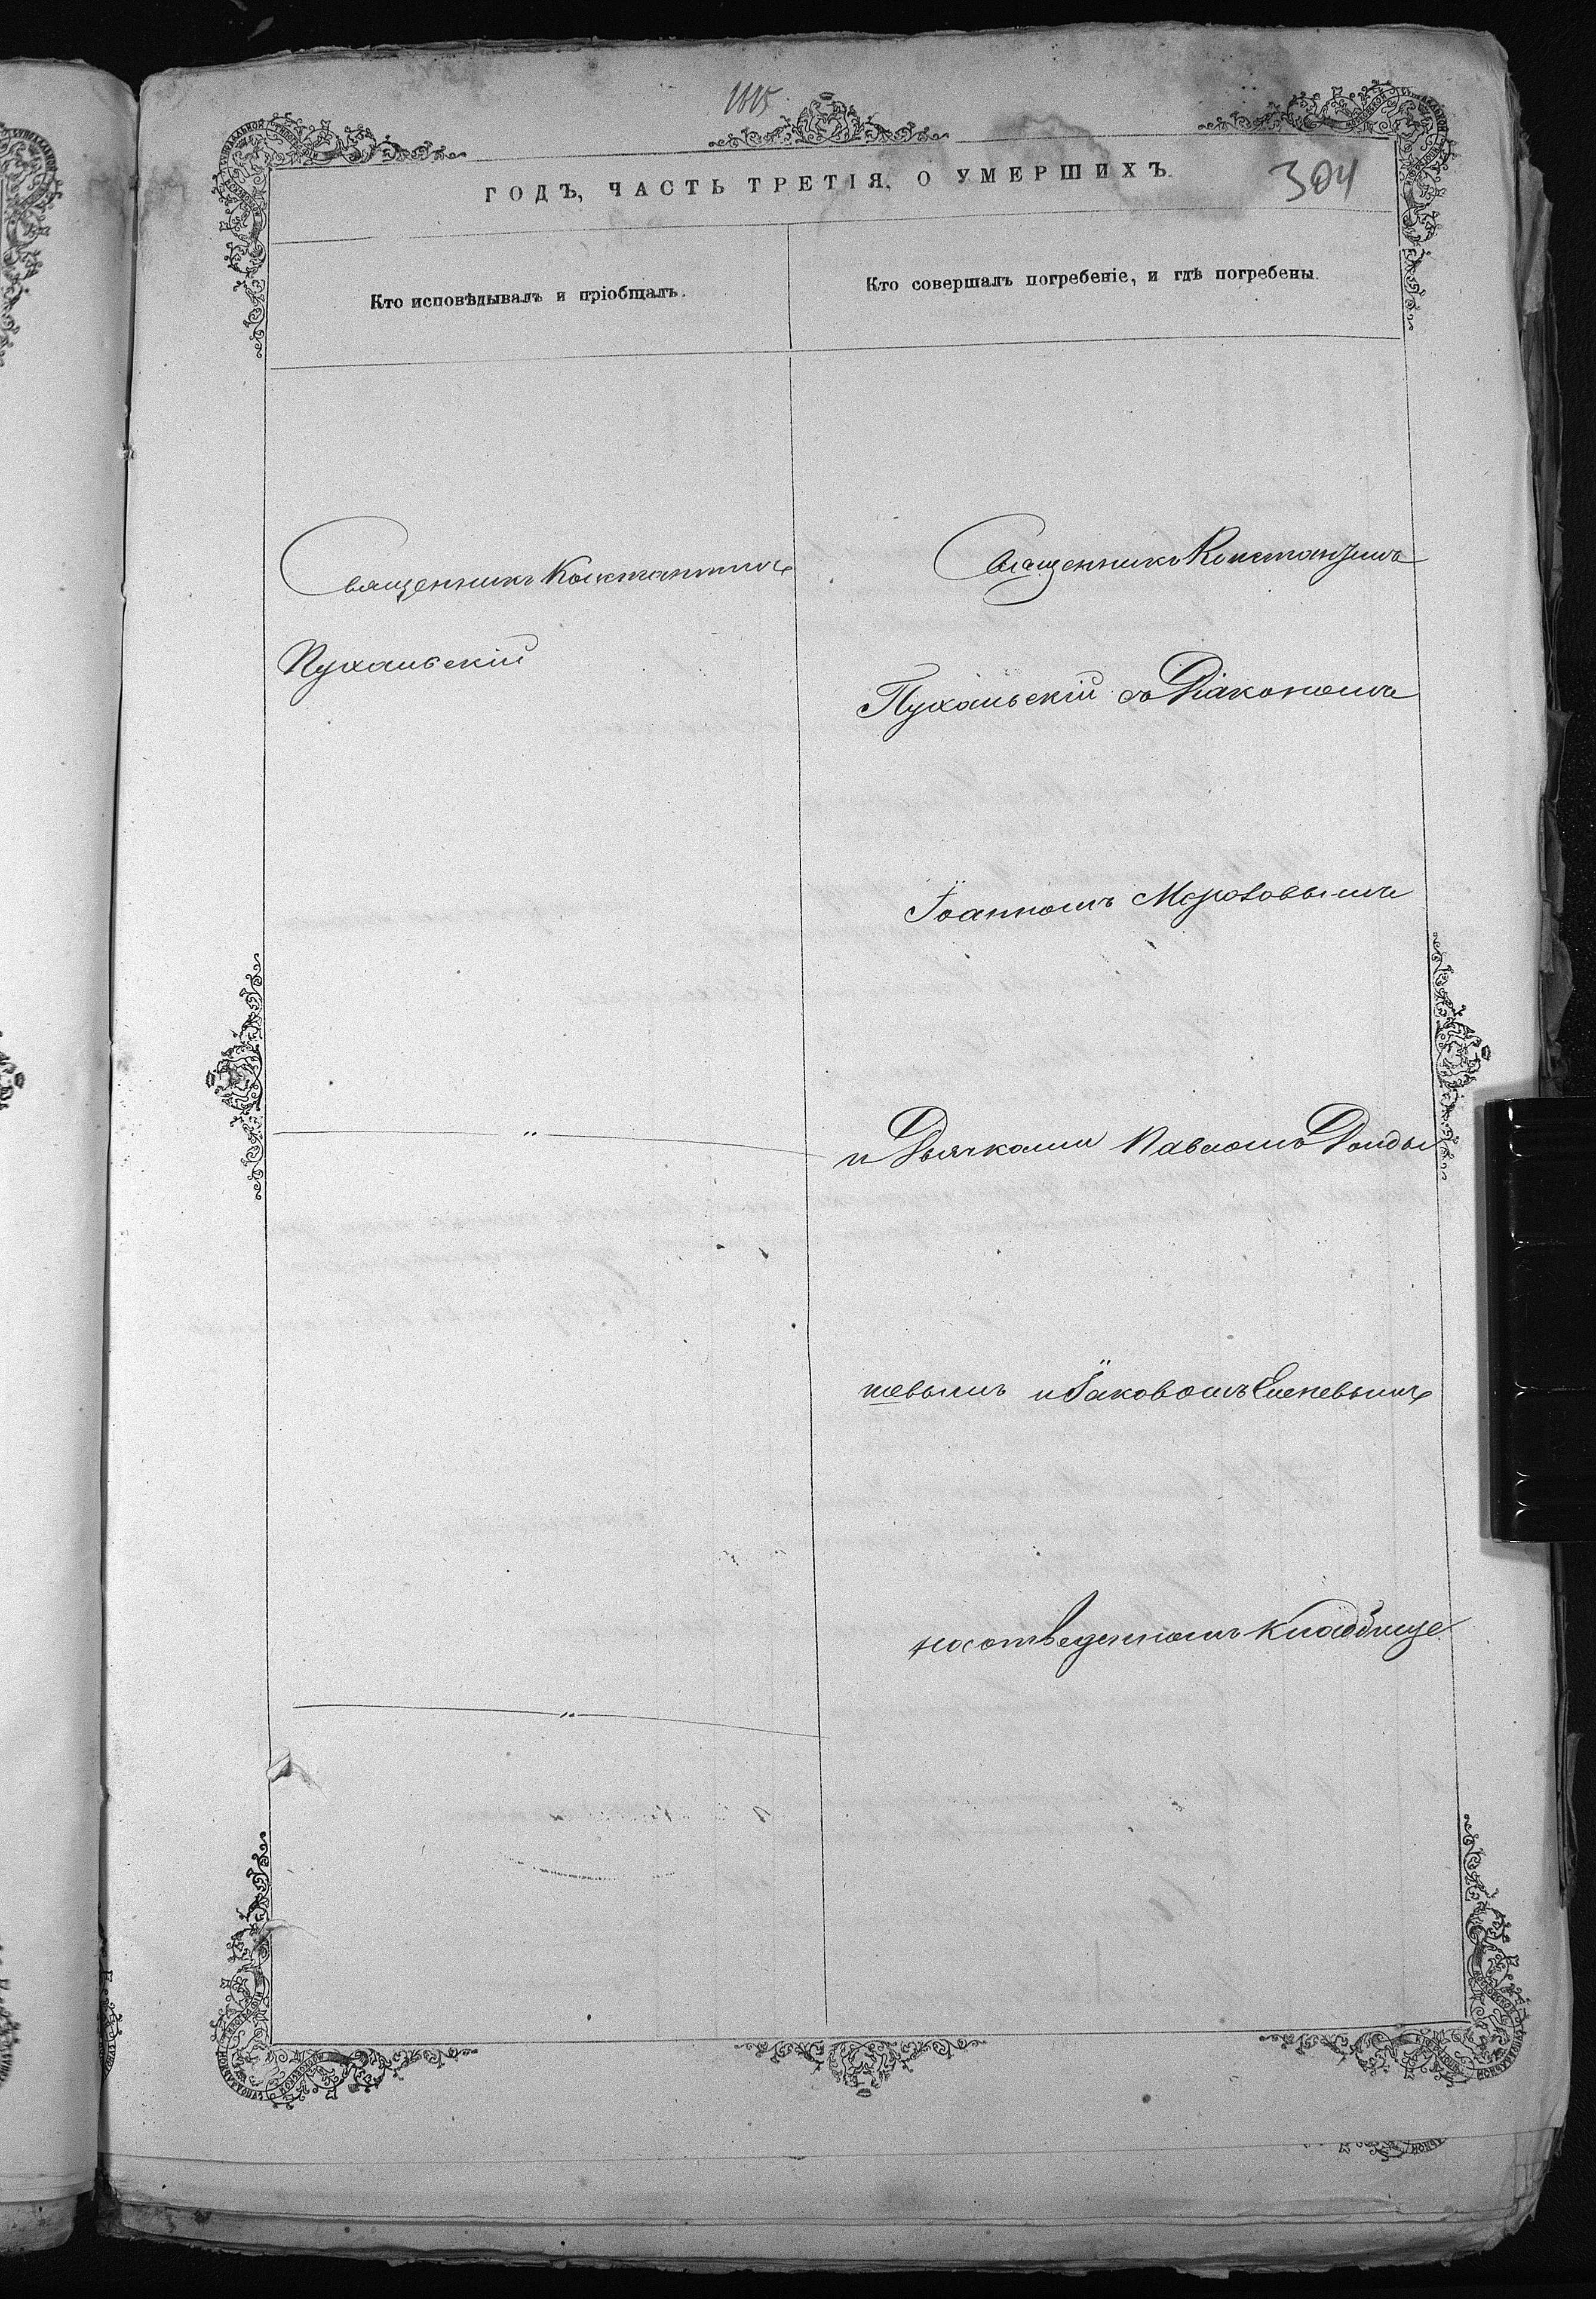 1115.
ГОДЪ, ЧАСТЬ ТРЕТІЯ, О УМЕРШИХЪ.
304
Кто исповѣдывалъ и пріобщалъ.
Кто совершалъ погребеніе, и гдѣ погребены.
Священникъ Константинъ
Пухальскій
Священникъ Константинъ
Пухальскій съ Діакономъ
Іоанномъ Морозовымъ
и Дьячками Павломъ Долды
шевымъ и Іаковомъ
на отведенномъ кладбище